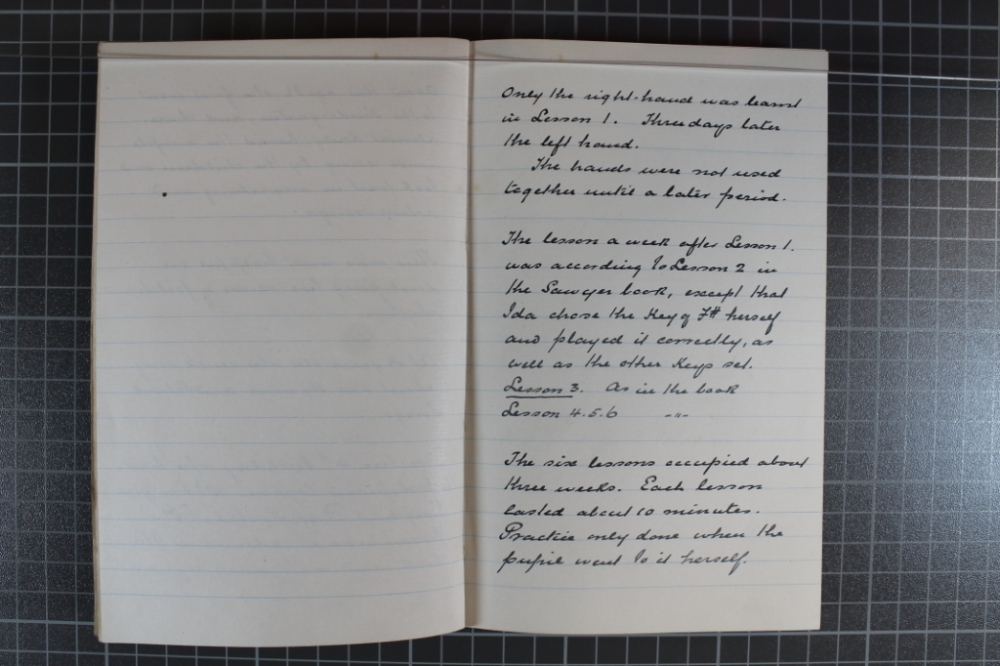 Only the right-hand was learnt
in Lesson 1. Three days later
the left hand.
The hands were not used
together until a later period.
The lesson a week after Lesson 1.
was according to Lesson 2 in
the Sawyer book, except that
Ida chose the Key of F# herself
and played it correctly, as
well as the other Keys set.
Lesson 3. As in the book
Lesson 4.5.6 -"-
The six lessons occupied about
three weeks. Each lesson
lasted about 10 minutes.
Practice only done when the
pupil went to it herself.